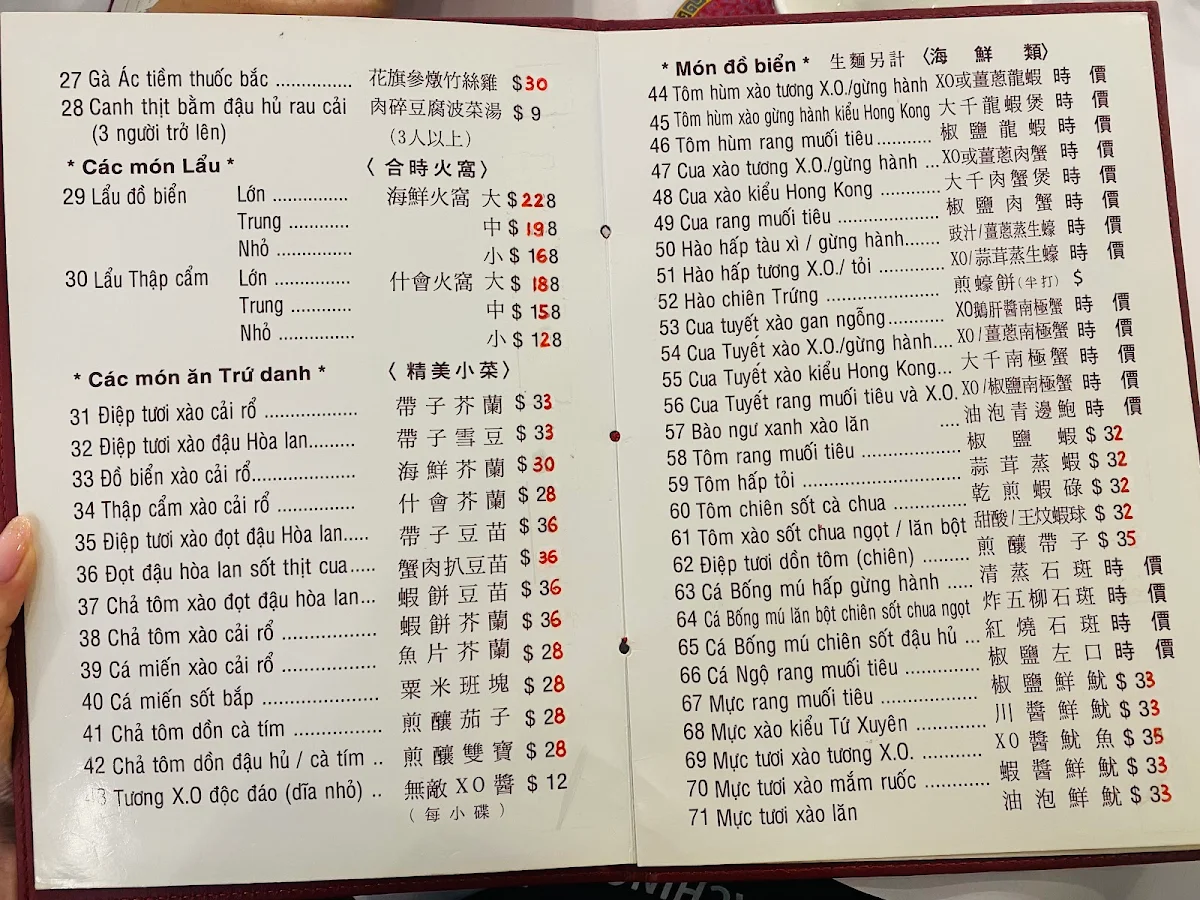 27 Gà Ác tiềm thuốc bắc ............... 花旗參燉竹絲雞 $30
28 Canh thịt bằm đậu hủ rau cải 肉碎豆腐波菜湯 $ 9
(3 người trở lên) (3人以上)
* Các món Lẩu * 〈 合時火窩 〉
29 Lẩu đồ biển Lớn ............... 海鮮火窩 大 $ 228
Trung ............ 中 $ 198
Nhỏ ............... 小 $ 168
30 Lẩu Thập cẩm Lớn ............... 什會火窩 大 $ 188
Trung ............ 中 $ 158
Nhỏ ............... 小 $ 128
* Các món ăn Trứ danh * 〈 精美小菜 〉
31 Điệp tươi xào cải rổ .................. 帶子芥蘭 $ 33
32 Điệp tươi xào đậu Hòa lan......... 帶子雪豆 $ 33
33 Đồ biển xào cải rổ.................... 海鮮芥蘭 $ 30
34 Thập cẩm xào cải rổ ............... 什會芥蘭 $ 28
35 Điệp tươi xào đọt đậu Hòa lan..... 帶子豆苗 $ 36
36 Đọt đậu hòa lan sốt thịt cua..... 蟹肉扒豆苗 $ 36
37 Chả tôm xào đọt đậu hòa lan... 蝦餅豆苗 $ 36
38 Chả tôm xào cải rổ .................. 蝦餅芥蘭 $ 36
39 Cá miến xào cải rổ .................. 魚片芥蘭 $ 28
40 Cá miến sốt bắp ...................... 粟米班塊 $ 28
41 Chả tôm dồn cà tím ................. 煎釀茄子 $ 28
42 Chả tôm dồn đậu hủ / cà tím .. 煎釀雙寶 $ 28
43 Tương X.O độc đáo (dĩa nhỏ) .. 無敵XO醬 $ 12
(每小碟)
* Món đồ biển * 生麵另計 〈海鮮類〉
44 Tôm hùm xào tương X.O./gừng hành XO或薑蔥龍蝦 時價
45 Tôm hùm xào gừng hành kiểu Hong Kong 大千龍蝦煲 時價
46 Tôm hùm rang muối tiêu........... 椒鹽龍蝦 時價
47 Cua xào tương X.O./gừng hành ... XO或薑蔥肉蟹 時價
48 Cua xào kiểu Hong Kong ............ 大千肉蟹煲 時價
49 Cua rang muối tiêu .................... 椒鹽肉蟹 時價
50 Hào hấp tàu xì / gừng hành....... 豉汁/薑蔥蒸生蠔 時價
51 Hào hấp tương X.O./ tỏi ............. XO/蒜茸蒸生蠔 時價
52 Hào chiên Trứng ....................... 煎蠔餅(半打) $
53 Cua tuyết xào gan ngỗng........... XO鵝肝醬南極蟹 時價
54 Cua Tuyết xào X.O./gừng hành.... XO/薑蔥南極蟹 時價
55 Cua Tuyết xào kiểu Hong Kong... 大千南極蟹 時價
56 Cua Tuyết rang muối tiêu và X.O. XO/椒鹽南極蟹 時價
57 Bào ngư xanh xào lăn .... 油泡青邊鮑 時價
58 Tôm rang muối tiêu .................... 椒鹽蝦 $ 32
59 Tôm hấp tỏi ................................ 蒜茸蒸蝦 $ 32
60 Tôm chiên sốt cà chua ............... 乾煎蝦碌 $ 32
61 Tôm xào sốt chua ngọt / lăn bột 甜酸/王炆蝦球 $ 32
62 Điệp tươi dồn tôm (chiên) ......... 煎釀帶子 $ 35
63 Cá Bống mú hấp gừng hành ..... 清蒸石斑 時價
64 Cá Bống mú lăn bột chiên sốt chua ngọt 炸五柳石斑 時價
65 Cá Bống mú chiên sốt đậu hủ ... 紅燒石斑 時價
66 Cá Ngộ rang muối tiêu ............... 椒鹽左口 時價
67 Mực rang muối tiêu .................... 椒鹽鮮魷 $ 33
68 Mực xào kiểu Tứ Xuyên ............. 川醬鮮魷 $ 33
69 Mực tươi xào tương X.O. ............ XO醬魷魚 $ 35
70 Mực tươi xào mắm ruốc ............ 蝦醬鮮魷 $ 33
71 Mực tươi xào lăn 油泡鮮魷 $ 33